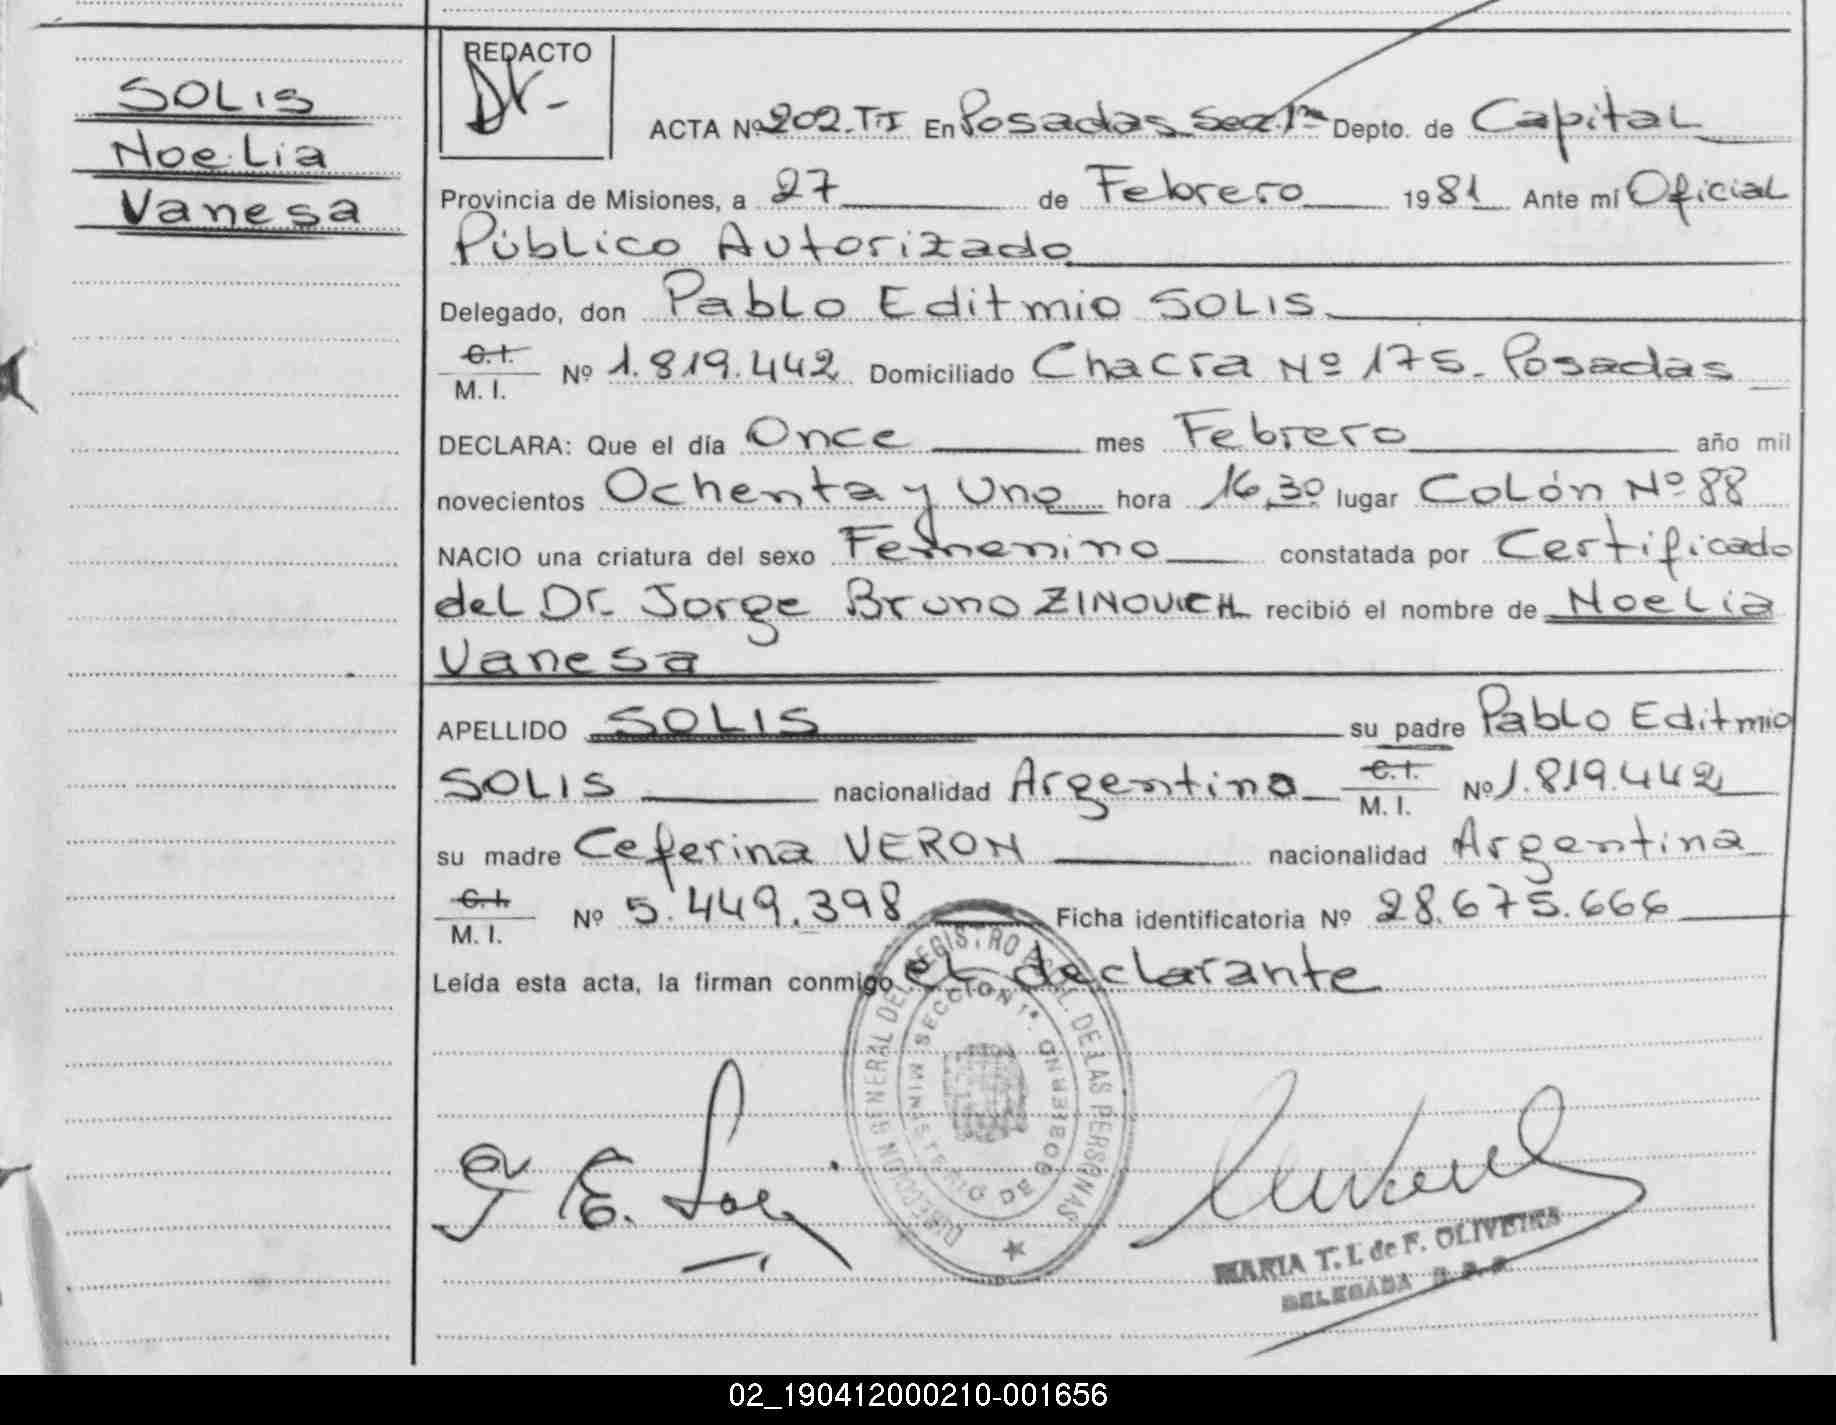 SOLIS
Noelia
Vanesa
REDACTO
ACTA Nº 202.TI En Posadas Sec. 1ª Depto. de Capital
Provincia de Misiones, a 27 de Febrero 1981 Ante mí Oficial
Público Autorizado
Delegado, don Pablo Editmio SOLIS
C.I.
M. I. Nº 1.819.442 Domiciliado Chacra Nº 175. Posadas
DECLARA: Que el día Once mes Febrero año mil
novecientos Ochenta y Uno hora 16,30 lugar Colón Nº 88
NACIO una criatura del sexo Femenino constatada por Certificado
del Dr. Jorge Bruno ZINOVICH recibió el nombre de Noelia
Vanesa
APELLIDO SOLIS su padre Pablo Editmio
SOLIS nacionalidad Argentino C.I. M. I. Nº 1.819.442
su madre Ceferina VERON nacionalidad Argentina
C.I.
M. I. Nº 5.449.398 Ficha identificatoria Nº 28.675.666
Leída esta acta, la firman conmigo el declarante
DIRECCION GENERAL DEL REGISTRO DE LAS PERSONAS
SECCION 1ª.
MINISTERIO DE GOBIERNO
P. E. Solis
MARIA T. I. de F. OLIVEIRA
DELEGADA
02_190412000210-001656